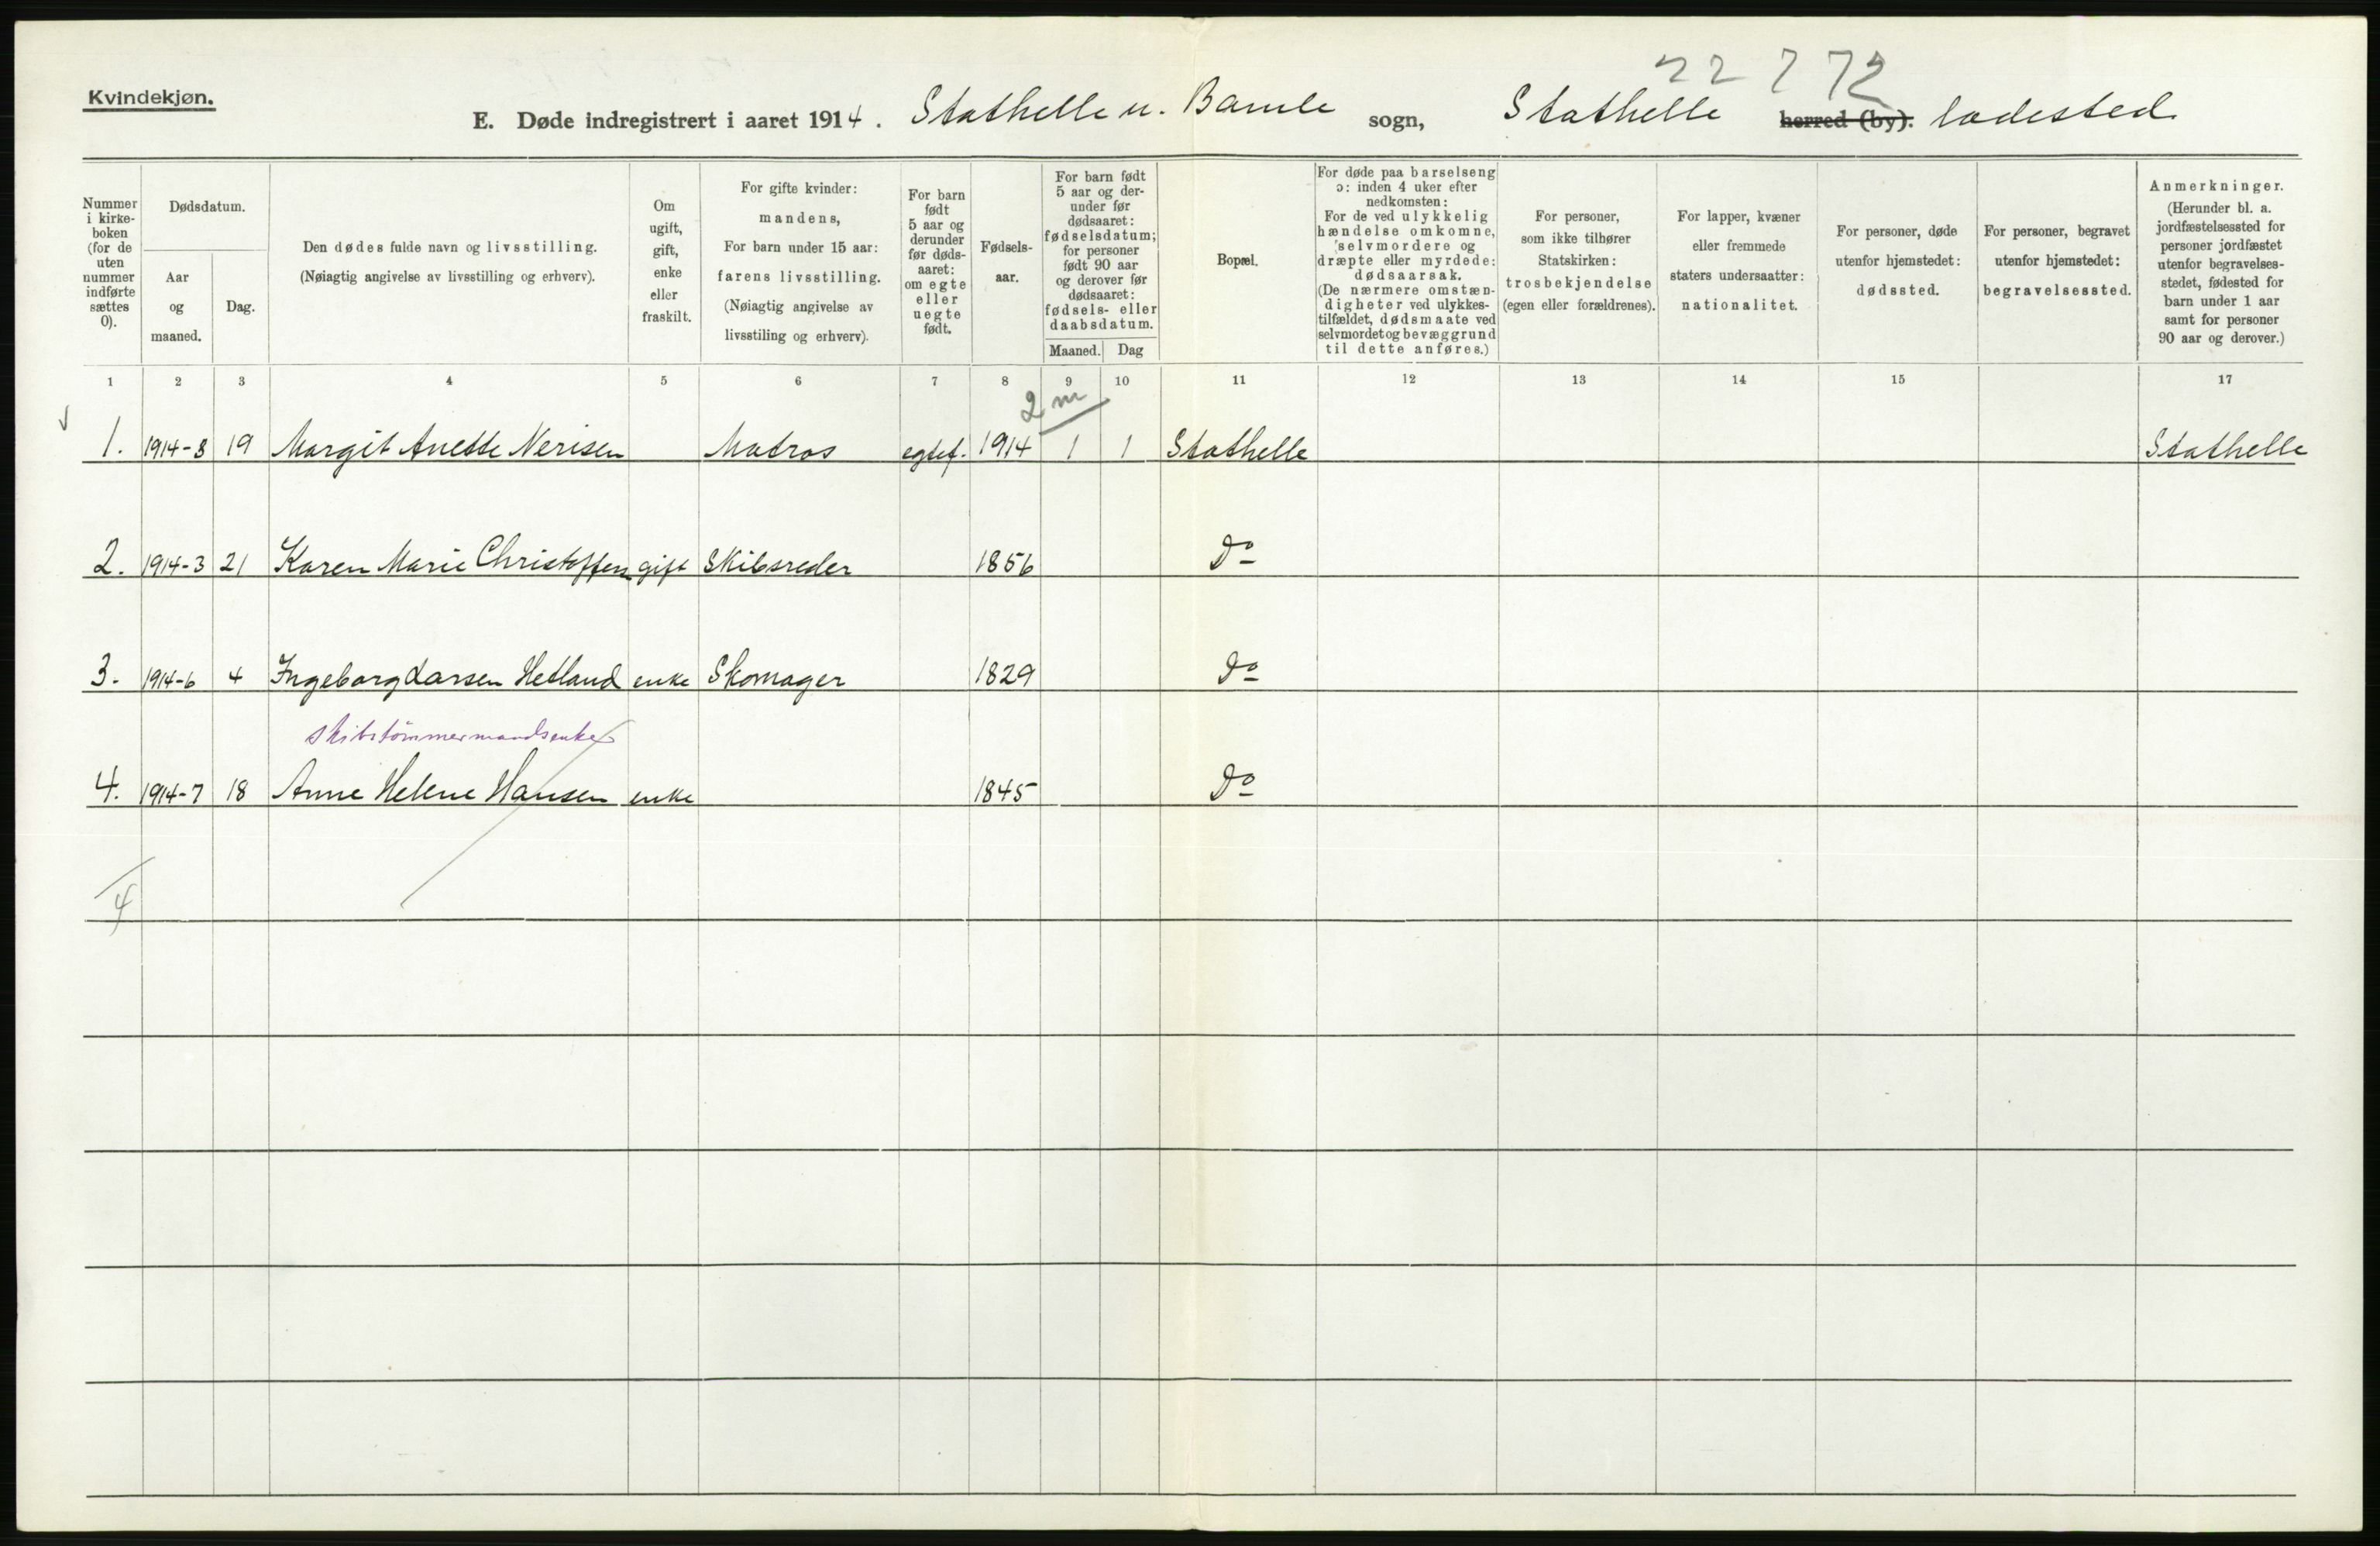 22 7 72
Kvindekjøn.
E. Døde indregistrert i aaret 1914. Stathelle u. Bamle sogn, Stathelle herred (by). ladested
Nummer i kirke- boken (for de uten nummer indførte sættes 0).
Dødsdatum.
Aar og maaned.
Dag.
Den dødes fulde navn og livsstilling.
(Nøiagtig angivelse av livsstilling og erhverv).
Om ugift, gift, enke eller fraskilt.
For gifte kvinder: mandens, For barn under 15 aar: farens livsstilling. (Nøiagtig angivelse av livsstiling og erhverv).
For barn født 5 aar og derunder før døds- aaret: om egte eller uegte født.
Fødsels- aar.
For barn født 5 aar og der- under før dødsaaret: fødselsdatum; for personer født 90 aar og derover før dødsaaret: fødsels- eller daabsdatum.
Maaned. Dag
Bopæl.
For døde paa barselseng ɔ: inden 4 uker efter nedkomsten: For de ved ulykkelig hændelse omkomne, selvmordere og dræpte eller myrdede: dødsaarsak. (De nærmere omstæn- digheter ved ulykkes- tilfældet, dødsmaate ved selvmordet og bevæggrund til dette anføres.)
For personer, som ikke tilhører Statskirken: trosbekjendelse (egen eller forældrenes).
For lapper, kvæner eller fremmede staters undersaatter: nationalitet.
For personer, døde utenfor hjemstedet: dødssted.
For personer, begravet utenfor hjemstedet: begravelsessted.
Anmerkninger. (Herunder bl. a. jordfæstelsessted for personer jordfæstet utenfor begravelses- stedet, fødested for barn under 1 aar samt for personer 90 aar og derover.)
1 2 3 4 5 6 7 8 9 10 11 12 13 14 15 17
2 m
1. 1914-3 19 Margit Anette Nerisen Matros egtef. 1914 1 1 Stathelle Stathelle
2. 1914-3 21 Karen Marie Christoffersen gift Skibsreder 1856 Do
3. 1914-6 4 Ingeborg Larsen Hetland enke Skomager 1829 Do
skibstømmermandsenke
4. 1914-7 18 Anne Helene Hansen enke 1845 Do
4